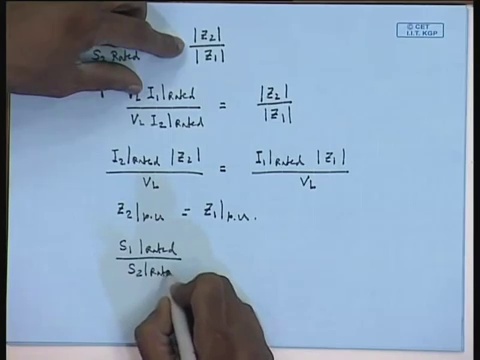 © CET
I.I.T. KGP
S₂ Rated |Z₂| / |Z₁|
V_L I₁|Rated / V_L I₂|Rated = |Z₂| / |Z₁|
I₂|Rated |Z₂| / V_L = I₁|Rated |Z₁| / V_L
Z₂|p.u = Z₁|p.u.
S₁|Rated / S₂|Rate